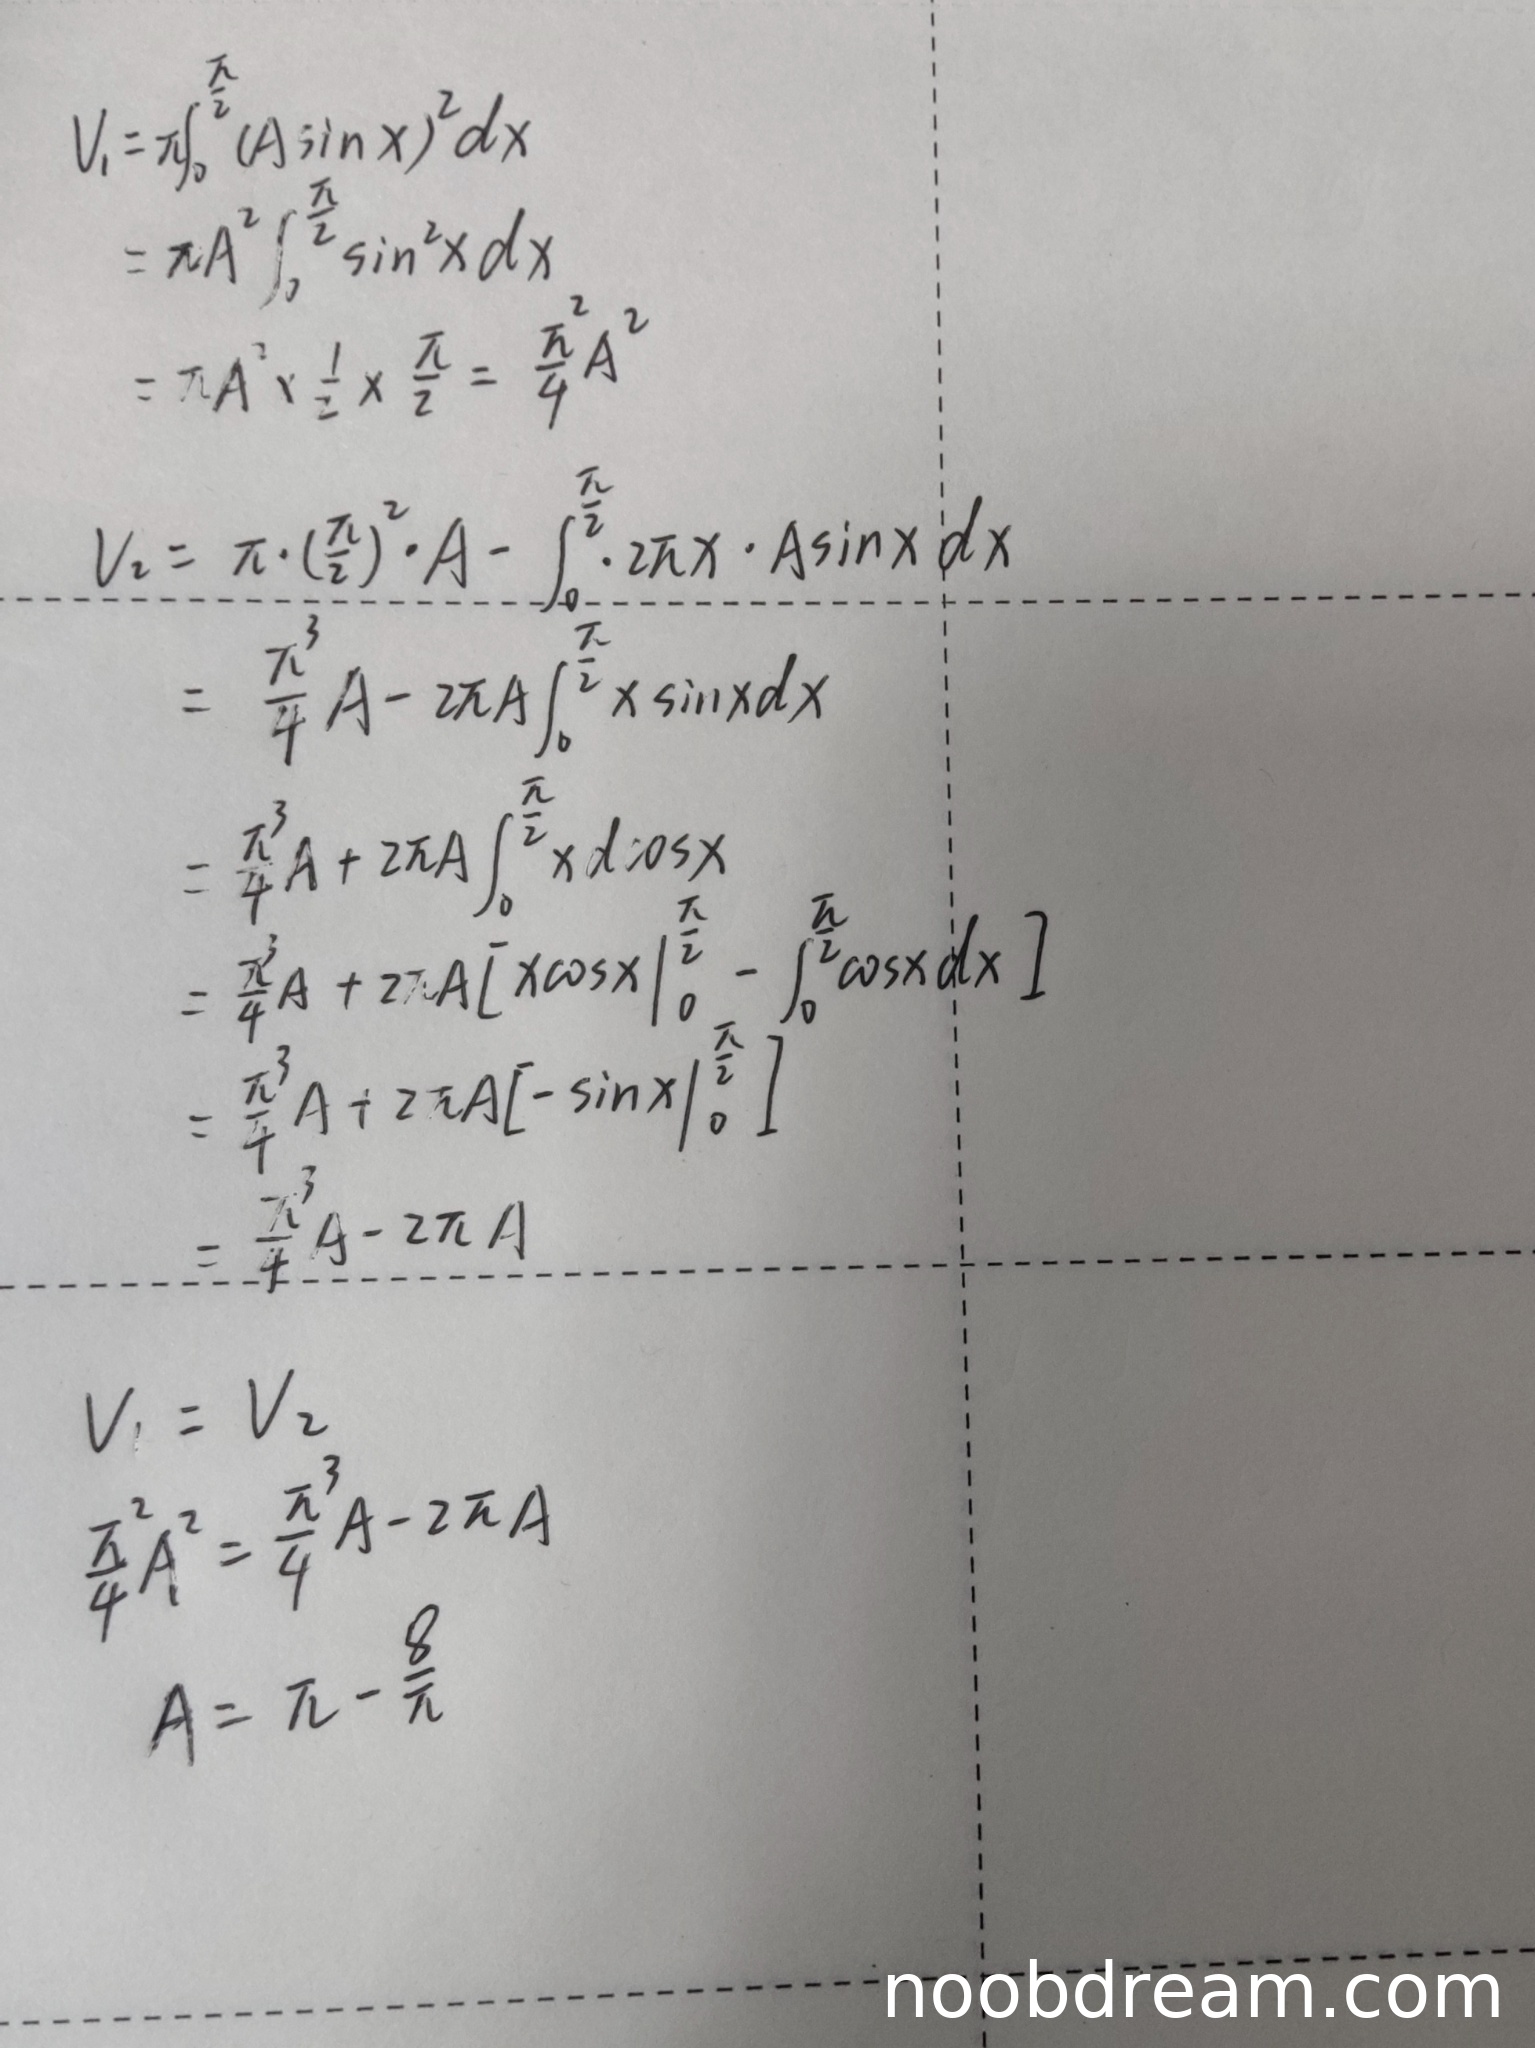 V₁ = π∫₀^(π/2) (A sin x)² dx
= πA² ∫₀^(π/2) sin²x dx
= πA² × 1/2 × π/2 = π²/4 A²
V₂ = π·(π/2)²·A - ∫₀^(π/2) ·2πx · A sin x dx
= π³/4 A - 2πA ∫₀^(π/2) x sin x dx
= π³/4 A + 2πA ∫₀^(π/2) x d cos x
= π³/4 A + 2πA [x cos x |₀^(π/2) - ∫₀^(π/2) cos x dx]
= π³/4 A + 2πA [- sin x |₀^(π/2)]
= π³/4 A - 2πA
V₁ = V₂
π²/4 A² = π³/4 A - 2πA
A = π - 8/π
noobdream.com